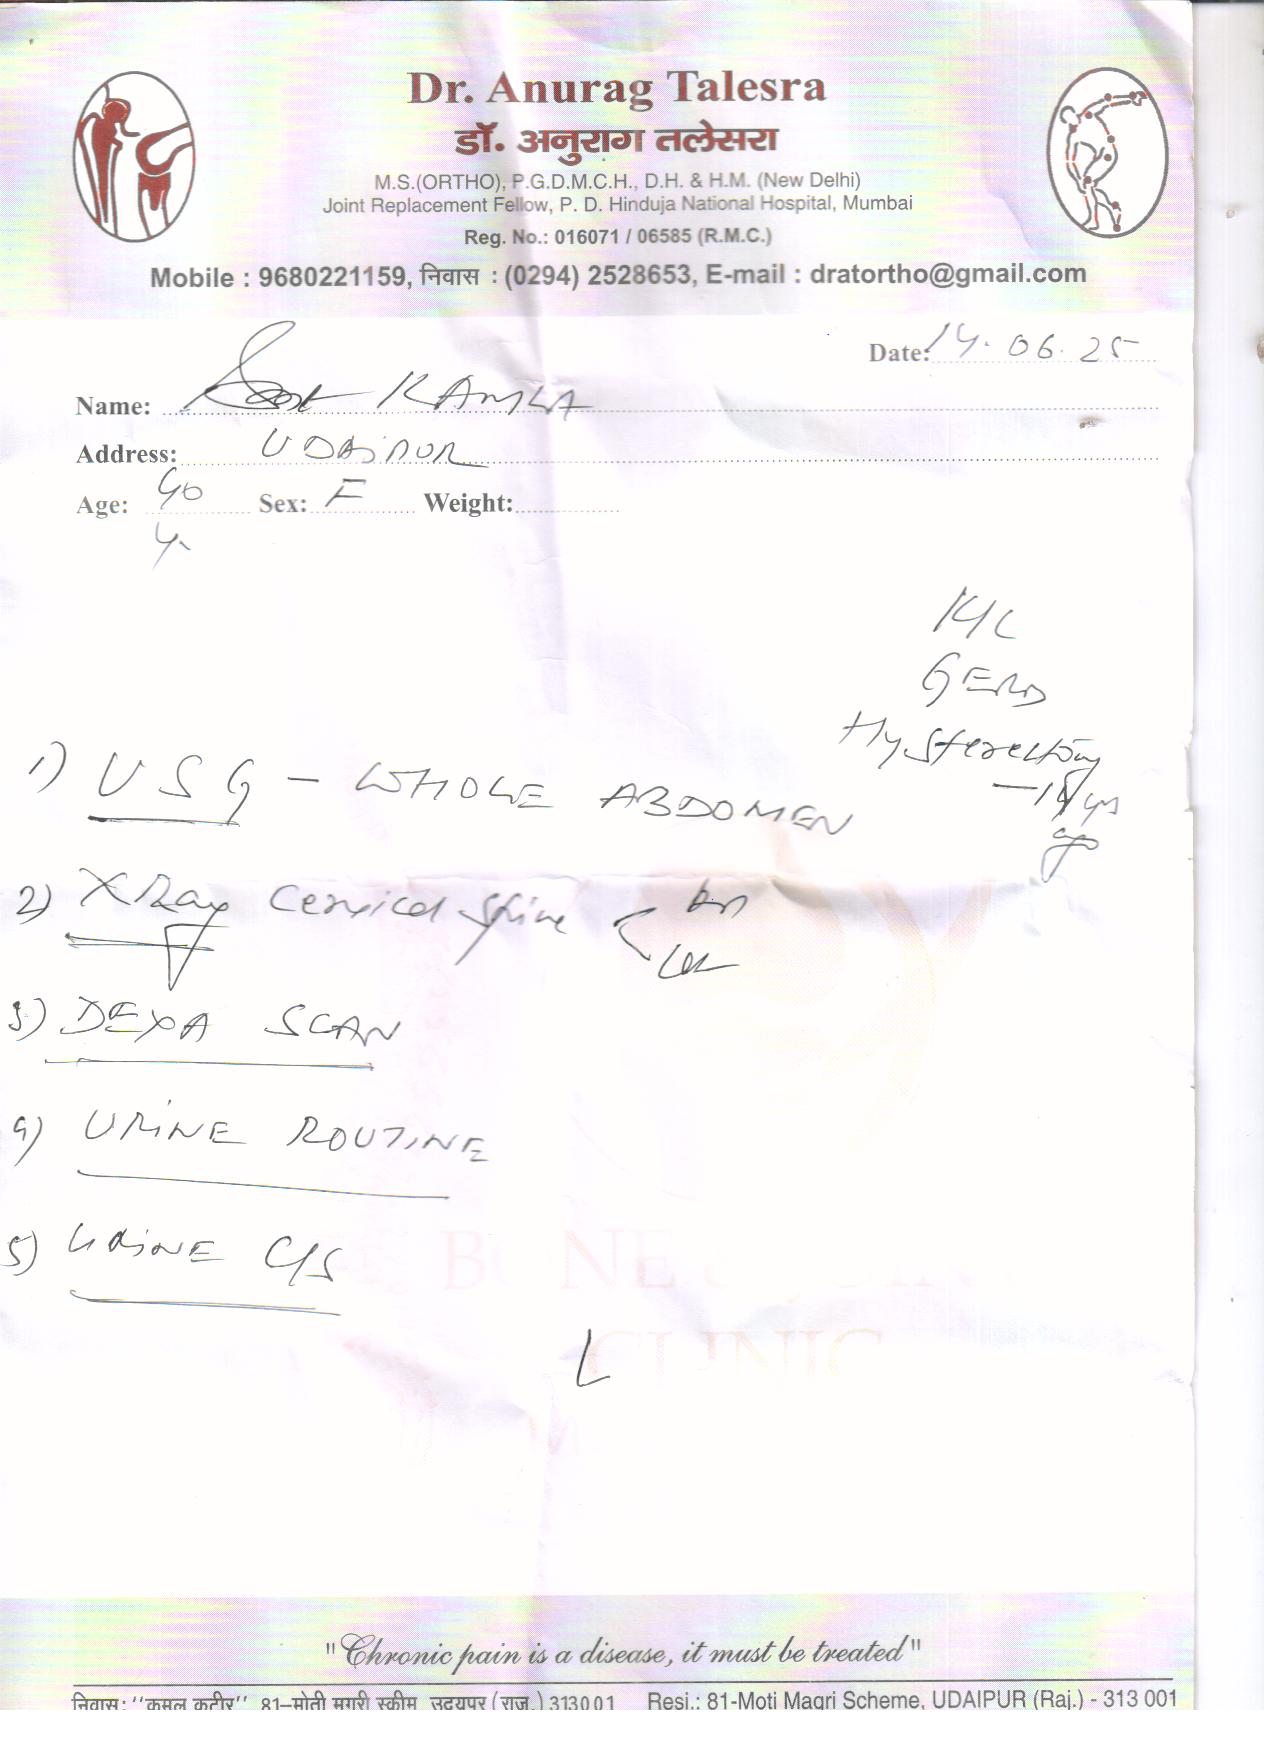 Dr. Anurag Talesra
डॉ. अनुराग तलेसरा
M.S.(ORTHO), P.G.D.M.C.H., D.H. & H.M. (New Delhi)
Joint Replacement Fellow, P. D. Hinduja National Hospital, Mumbai
Reg. No.: 016071 / 06585 (R.M.C.)
Mobile : 9680221159, निवास : (0294) 2528653, E-mail : dratortho@gmail.com
Date: 14.06.25
Name: KAMLA
Address: UDAIPUR
Age: 40 Sex: F Weight:
GERD
Hysterectomy
yrs
ago
1) USG - WHOLE ABDOMEN
2) XRay Cervical Spine
3) DEXA SCAN
4) URINE ROUTINE
5) URINE C/S
BONE
CLINIC
"Chronic pain is a disease, it must be treated"
निवास: ''कमल कुटीर'' 81–मोती मगरी स्कीम उदयपुर (राज.) 313001 Resi.: 81-Moti Magri Scheme, UDAIPUR (Raj.) - 313 001